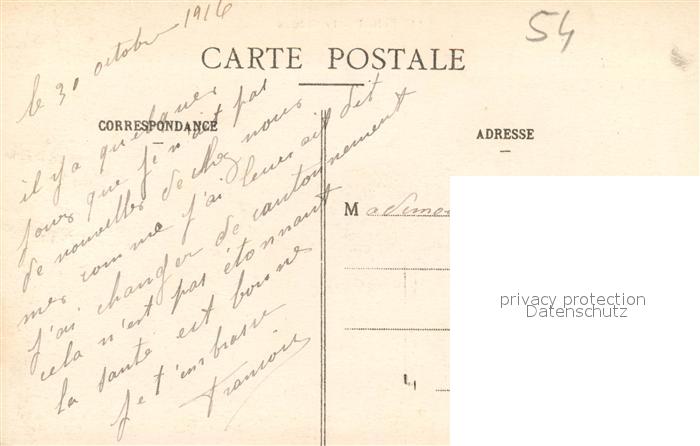 le 30 octobre 1916
54
CARTE POSTALE
CORRESPONDANCE
ADRESSE
il y a quelques
jours que je n'ait pas
de nouvelles de chez nous
mes comme j'ai leurs ait dit
j'ai changer de cantonnement
cela n'est pas étonnant
la santé est bonne
je t'embrasse
François
Mademoi
privacy protection
Datenschutz